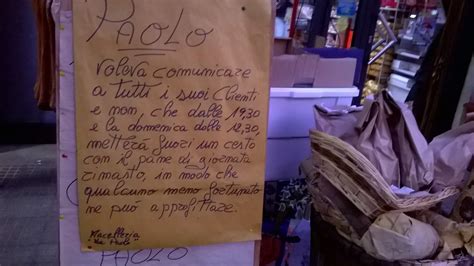 PAOLO
voleva comunicare
a tutti i suoi clienti
e non, che dalle 19,30
e la domenica dalle 12,30,
metterà fuori un cesto
con il pane di giornata
rimasto, in modo che
qualcuno meno fortunato
ne può approfittare.
Macelleria
"da Paolo"
PAOLO